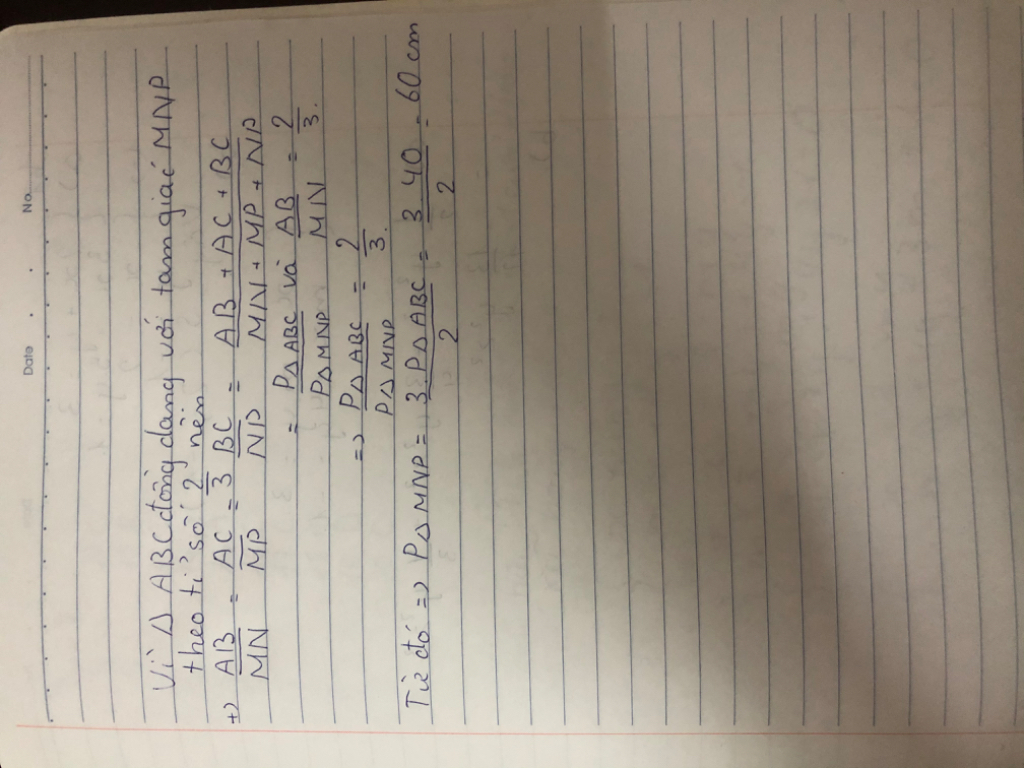 Date No.
Vì Δ ABC đồng dạng với tam giác MNP
theo tỉ số 2/3 nên
+) AB/MN = AC/MP = BC/NP = AB + AC + BC/MN + MP + NP
= PΔABC/PΔMNP và AB/MN = 2/3.
=> PΔABC/PΔMNP = 2/3.
Từ đó => PΔMNP = 3 PΔABC/2 = 3 40/2 = 60 cm